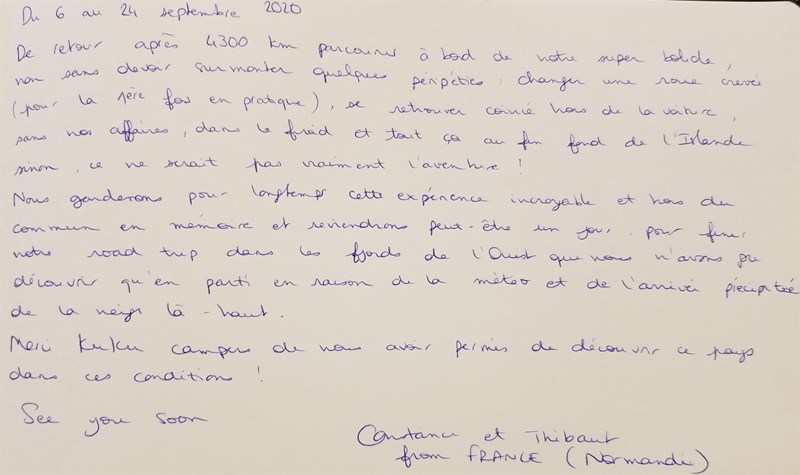 Du 6 au 24 septembre 2020
De retour après 4300 km parcourus à bord de notre super bolide,
non sans devoir surmonter quelques péripéties : changer une roue crevée
(pour la 1ère fois en pratique), se retrouver coincé hors de la voiture,
sans nos affaires, dans le froid et tout ça au fin fond de l'Islande
sinon, ce ne serait pas vraiment l'aventure !
Nous garderons pour longtemps cette expérience incroyable et hors du
commun en mémoire et reviendrons peut-être un jour pour finir
notre road trip dans les fjords de l'Ouest que nous n'avons pu
découvrir qu'en parti en raison de la météo et de l'arrivée précipitée
de la neige là-haut.
Merci KuKu campers de nous avoir permis de découvrir ce pays
dans ces conditions !
See you soon
Constance et Thibaut
from FRANCE (Normandie)